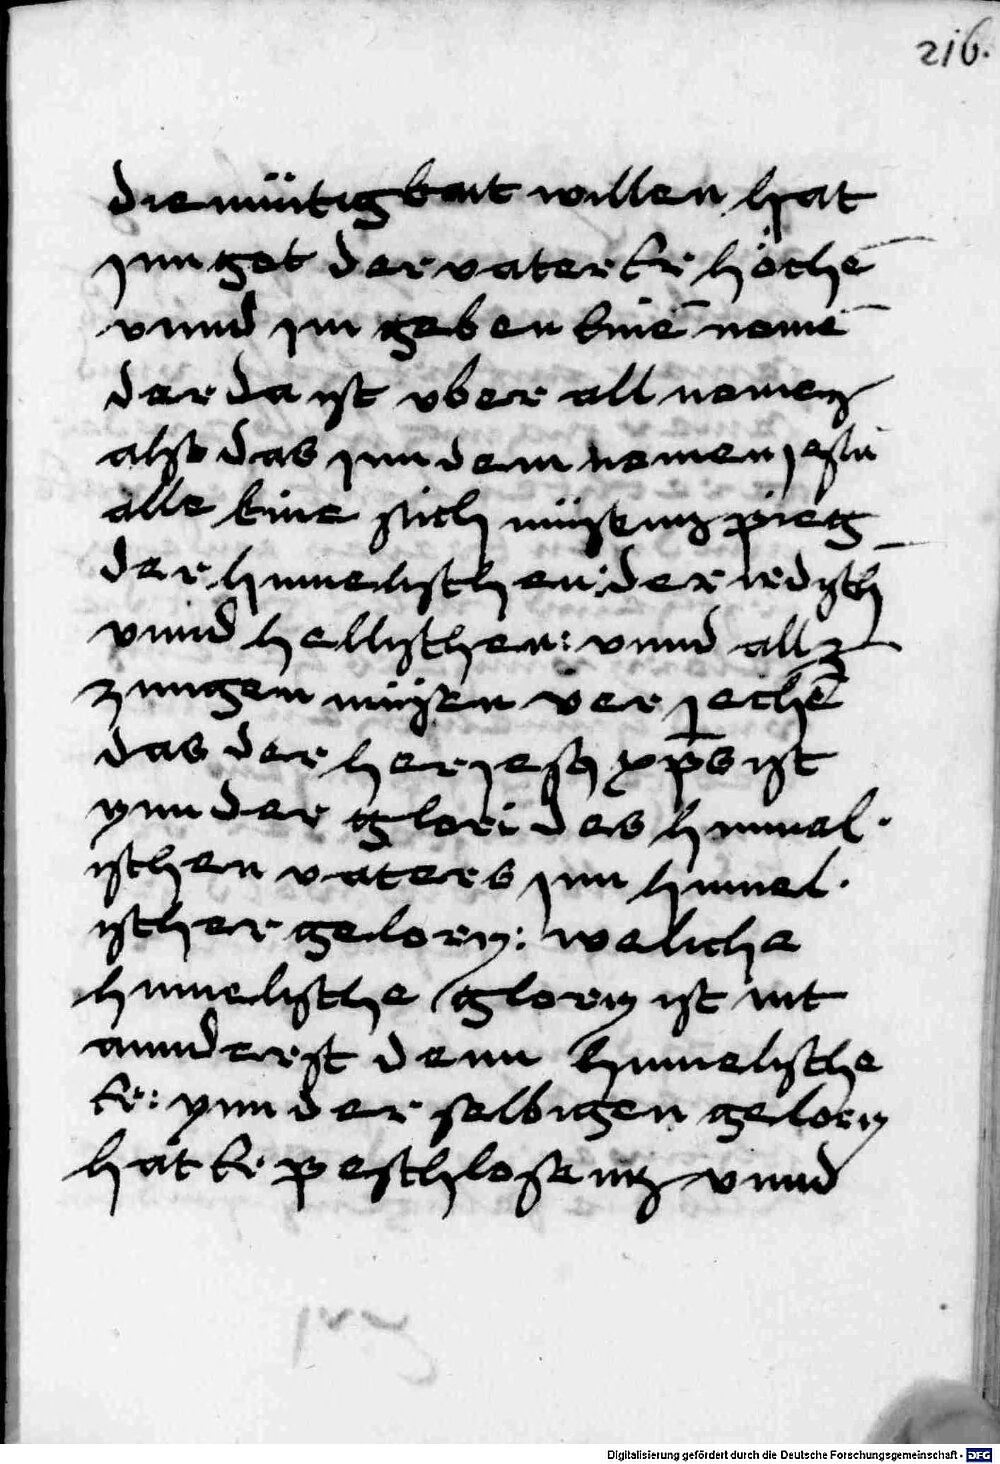 216.
diemüttigkait willen hat
jnn got der vater er höchē
vnnd jm geben einē nomē
der da ist vber all nomen
also das jnn dem nomen jesu
alle knie sich müssenn pieg
der himelischen: der irdisch
vnnd hellischen: vnnd all
zungen müssen ver jechē
das der her jesus xp̄s ist
ynn der glori des himel.
ischen vaters jnn himel.
ischer gelory: weliche
himelische glory ist nit
annderst denn himelische
er: ynn der selbigen gelory
hat er peschlossenn vnnd
Digitalisierung gefördert durch die Deutsche Forschungsgemeinschaft - DFG